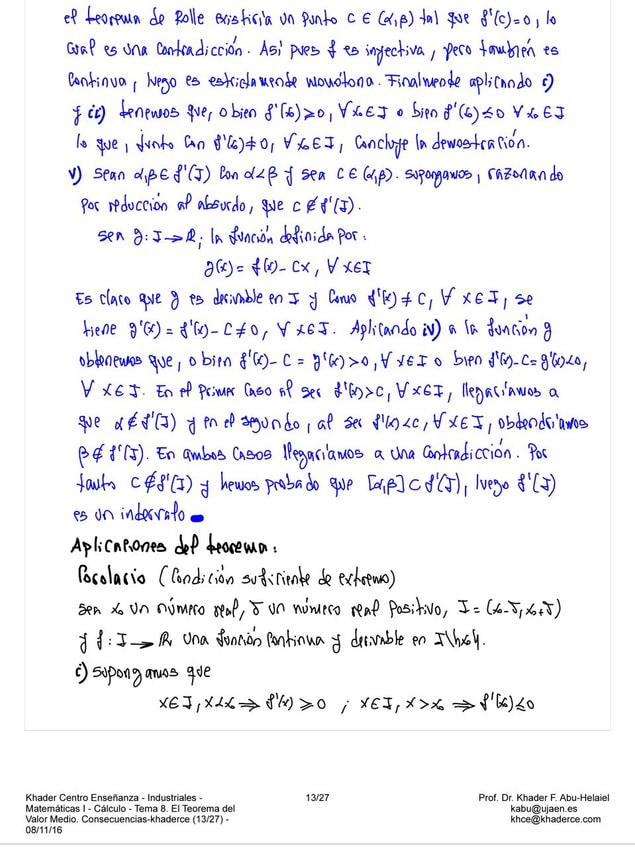 el teorema de Rolle existiría un punto c ∈ (α,β) tal que f'(c)=0, lo
cual es una contradicción. Así pues f es inyectiva, pero también es
continua, luego es estrictamente monótona. Finalmente aplicando i)
y ii) tenemos que, o bien f'(x₀)⩾0, ∀x₀∈I o bien f'(x₀)⩽0 ∀x₀∈I
lo que, junto con f'(x₀)≠0, ∀x₀∈I, concluye la demostración.
v) Sean α,β∈f'(I) con α<β y sea c∈(α,β). supongamos, razonando
por reducción al absurdo, que c∉f'(I).
sea g: I→ℝ, la función definida por:
g(x) = f(x) - cx, ∀ x∈I
Es claro que g es derivable en I y como f'(x) ≠ c, ∀ x∈I, se
tiene g'(x) = f'(x) - c ≠ 0, ∀ x∈I. Aplicando iv) a la función g
obtenemos que, o bien f'(x)-c = g'(x)>0, ∀ x∈I o bien f'(x)-c=g'(x)<0,
∀ x∈I. En el primer caso al ser f'(x)>c, ∀x∈I, llegaríamos a
que α∉f'(I) y en el segundo, al ser f'(x)<c, ∀x∈I, obtendríamos
β∉f'(I). En ambos casos llegaríamos a una contradicción. Por
tanto c∉f'(I) y hemos probado que [α,β]⊂f'(I), luego f'(I)
es un intervalo
Aplicaciones del teorema:
Corolario (Condición suficiente de extremo)
sea x₀ un número real, δ un número real positivo, I = (x₀-δ, x₀+δ)
y f: I→ℝ una función continua y derivable en I\{x₀}.
i) supongamos que
x∈I, x<x₀ ⇒ f'(x) ⩾ 0 ; x∈I, x>x₀ ⇒ f'(x₀)⩽0
Khader Centro Enseñanza - Industriales -
Matemáticas I - Cálculo - Tema 8. El Teorema del
Valor Medio. Consecuencias-khaderce (13/27) -
08/11/16
13/27
Prof. Dr. Khader F. Abu-Helaiel
kabu@ujaen.es
khce@khaderce.com